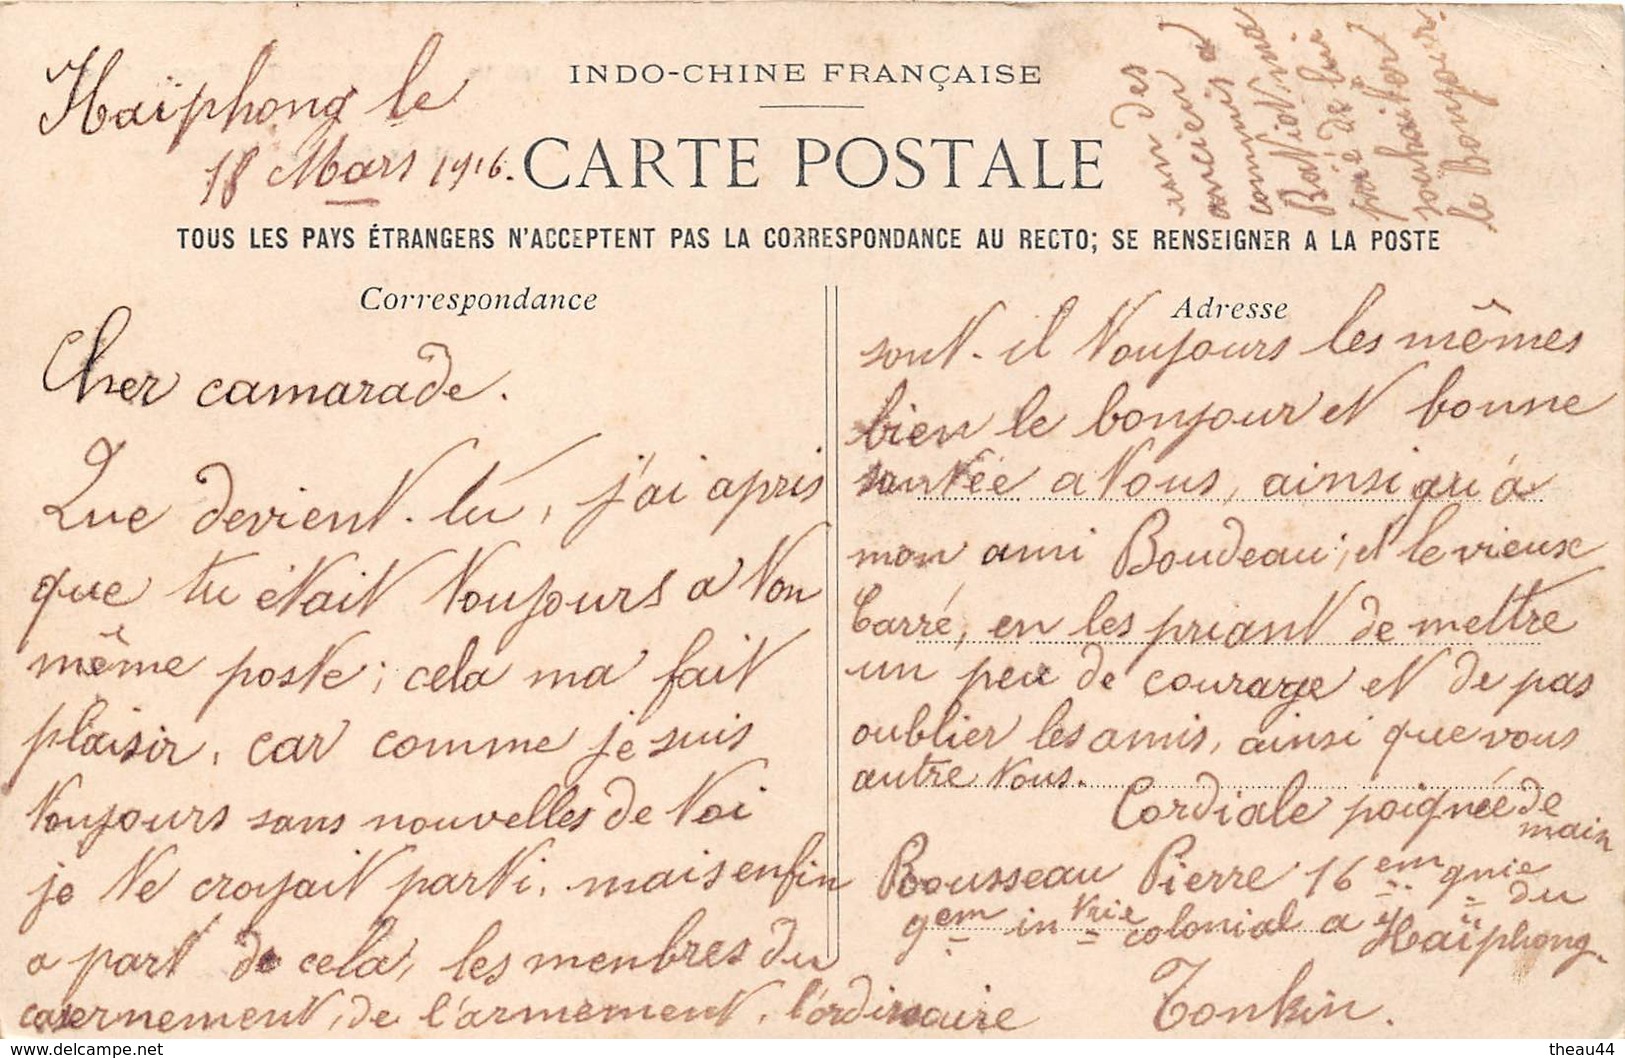 Haïphong le
18 Mars 1916.
INDO-CHINE FRANÇAISE
CARTE POSTALE
TOUS LES PAYS ÉTRANGERS N'ACCEPTENT PAS LA CORRESPONDANCE AU RECTO; SE RENSEIGNER A LA POSTE
Correspondance
Cher camarade.
Que devient-tu, j'ai apris
que tu était toujours a ton
même poste; cela ma fait
plaisir, car comme je suis
toujours sans nouvelles de toi
je te croyait parti, mais enfin
a part de cela, les menbres du
casernement, de l'armement, l'ordinaire
Adresse
sont-il toujours les mêmes
bien le bonjour et bonne
santée a tous, ainsi qu'a
mon ami Boudeau; et le vieux
Carré, en les priant de mettre
un peu de courage et de pas
oublier les amis, ainsi que vous
autre tous.
Cordiale poignée de
main
Bousseau Pierre 16em gnie du
9em in trie colonial a Haïphong
Tonkin.
des
ancien
commis a
ma
de lui
souhaiter
le bonjour.
theau44